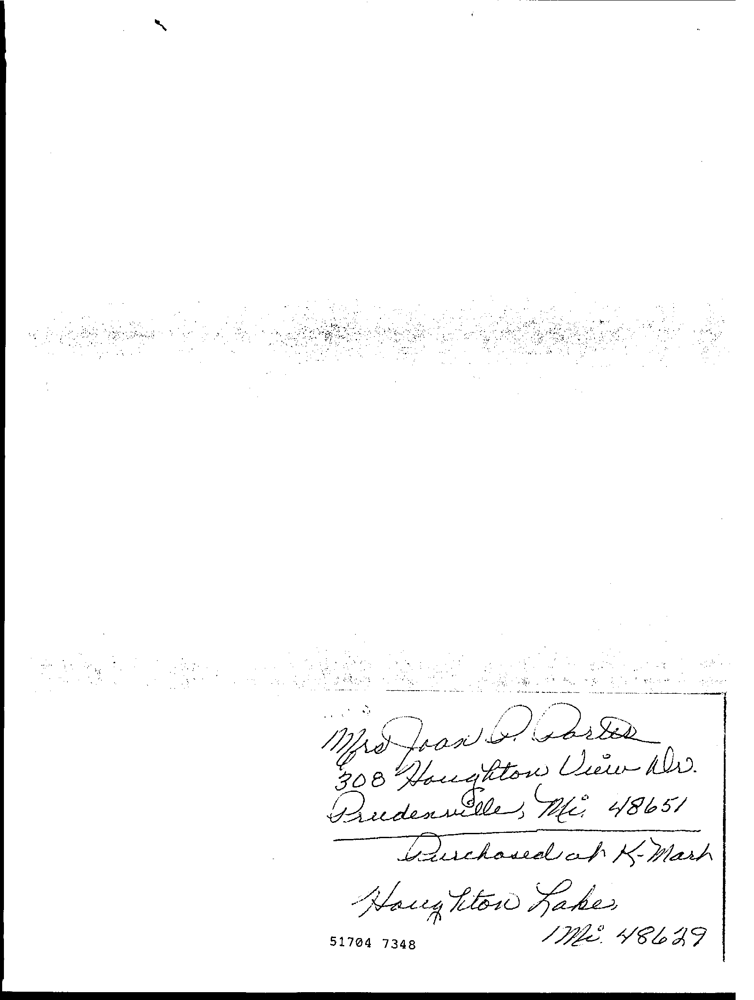 Mrs Joan P. Porter
308 Houghton View Dr.
Prudenville, Mi. 48651
Purchased at K-Mart
Houghton Lake,
Mi. 48629
51704 7348